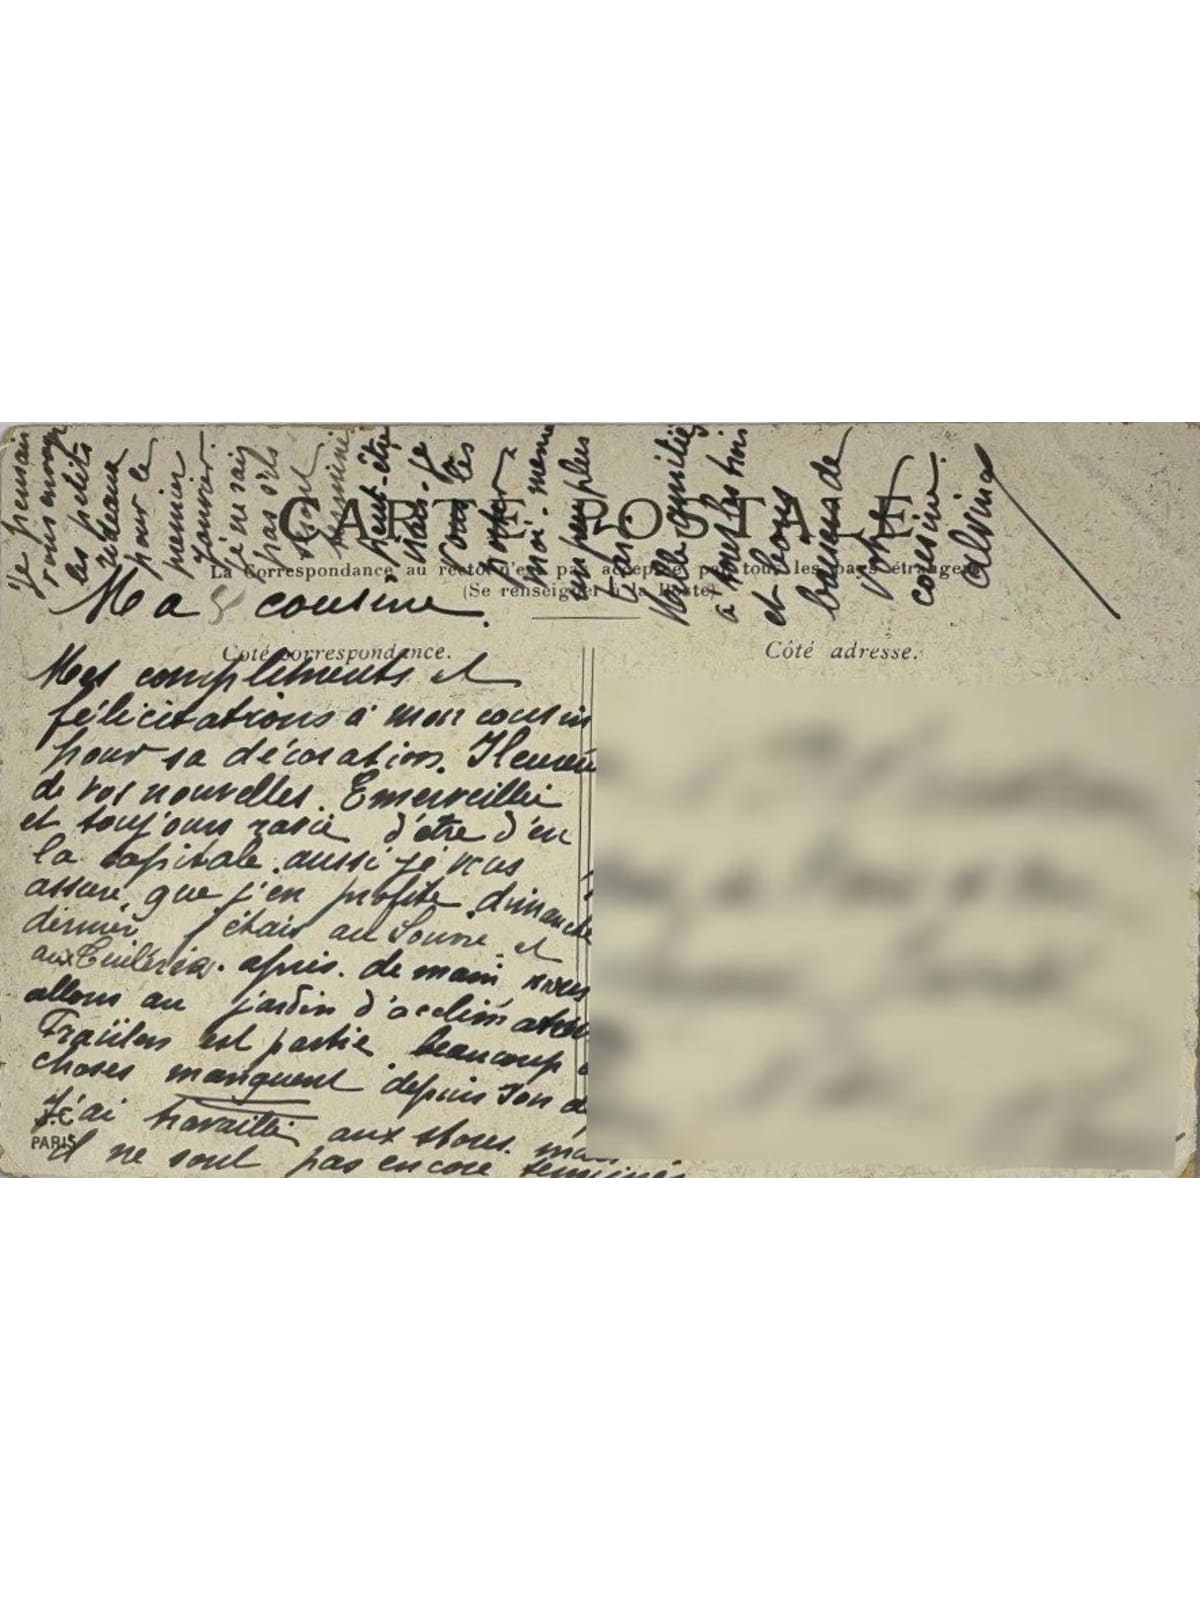 CARTE POSTALE
La Correspondance au recto n'est pas acceptée par tous les pays étrangers
(Se renseigner à la Poste)
Côté correspondance.
Côté adresse.
Ma cousine.
Mes compliments et
félicitations à mon cousin
pour sa décoration. Heureu
de vos nouvelles. Emerveillée
et toujours ravie d'être d'en
la capitale. aussi je vous
assure que j'en profite. dimanche
dernier j'étais au Louvre et
aux Tuileries. après. demain nous
allons au jardin d'acclimatation
est partie beaucoup
choses manquent depuis son d
J'ai travaillé aux stores. mais
il ne sont pas encore terminés
J.C
PARIS
Je pensais
vous envoyer
les petits
rideaux
pour le
premier
Janvier.
je ne sais
pas s'ils
seront
terminé.
peut-être
irais-je
vous les
porter
moi-même
un peu plus
tard.
Mille amitiés
à tous les trois
et bons
baisers de
votre
cousine.
Alvina